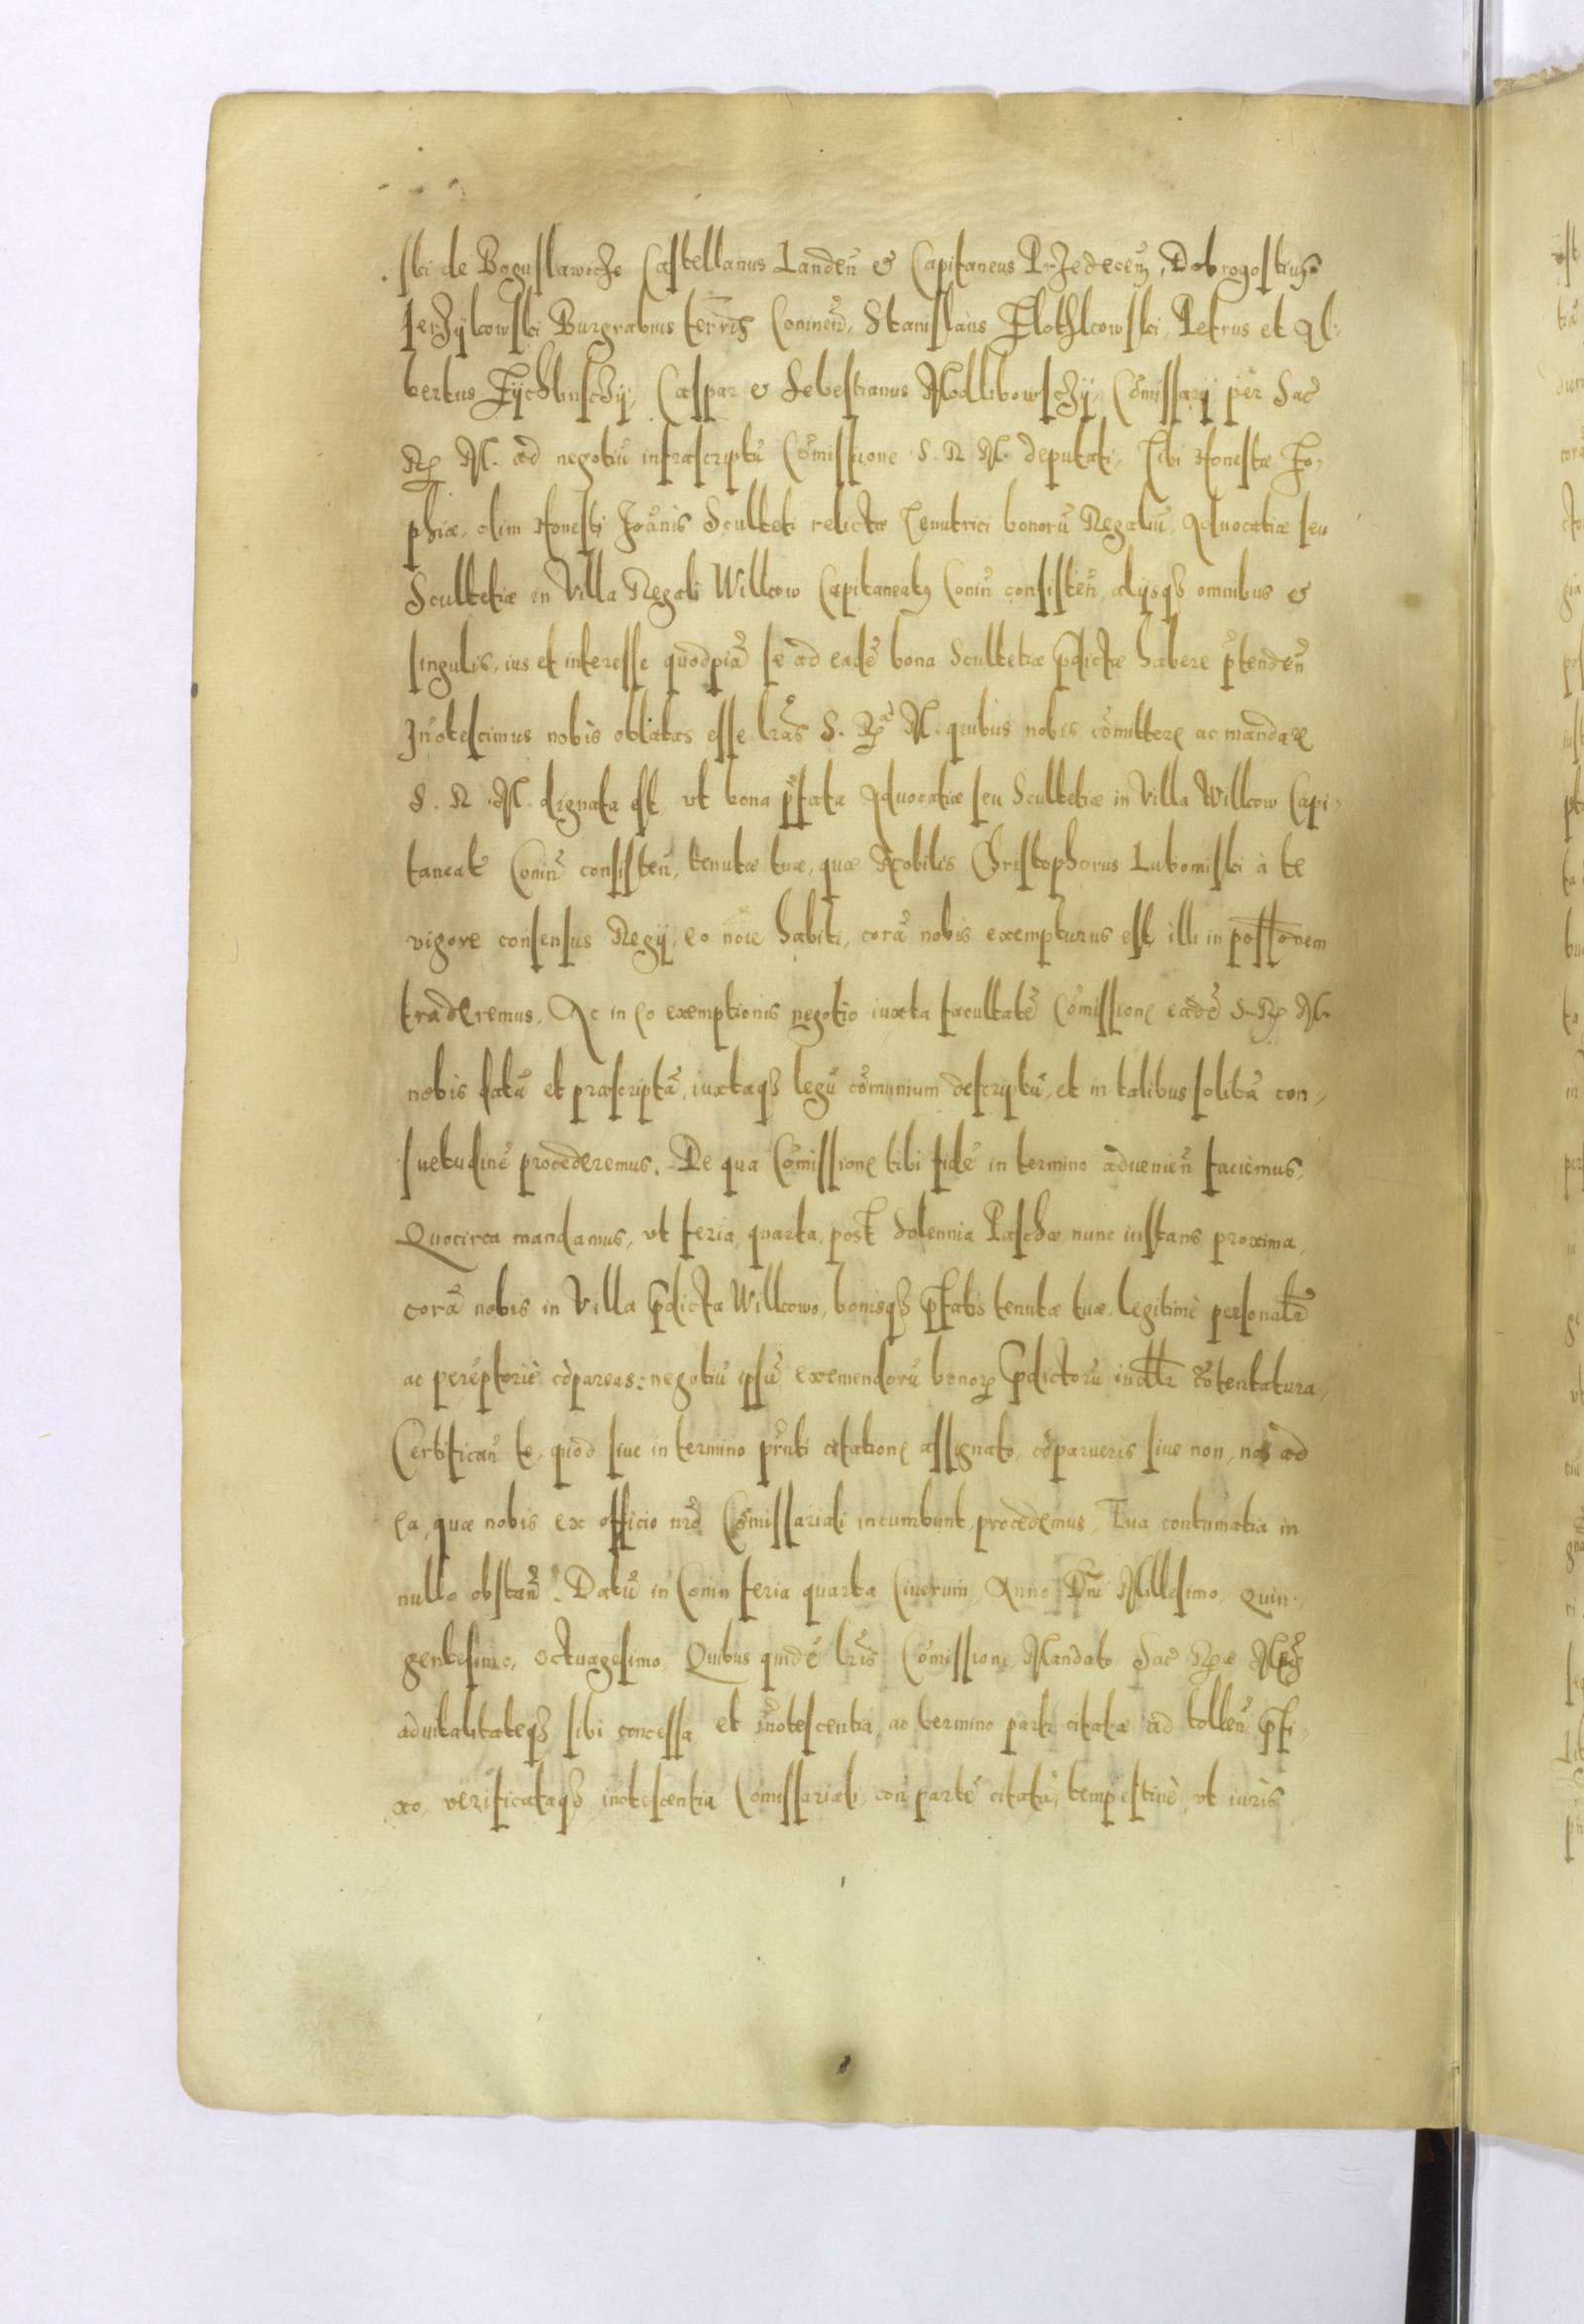 ski de Boguslawicze Castellanus Landeñ & Capitaneus Przedeceñ, Dobrogostius
Jerzykowski Burgrabius terrīs Conineñ, Stanislaus Zlothkowski, Petrus et Al-
bertus Zychlinsczy, Caspar & Sebestianus Modlibowsczy, Cōmissarij per Sac
Rę M. ad negotiū infrascriptū Cōmissione S. R. M. deputati, Tibi Honestæ Zo-
phiæ, olim Honesti Joānis Sculteti relictæ Tenutrici bonorū Regaliū Aduocatiæ seu
Scultetiæ in Villa Regali Willcow Capitaneatꝰ Coniñ consisteñ, alijsqȝ omnibus &
singulis, ius et interesse quodpiā se ad eadē bona Scultetiæ p̄dictæ habere p̄tendeñ
Iñotescimus nobis oblatas esse lrās S. Rę M. quibus nobis cōmittere ac mandare
S. R. M. dignata est, vt bona p̄fata Aduocatiæ seu Scultetiæ in Villa Willcow Capi-
taneatꝰ Coniñ consisteñ, tenutæ tuæ, quæ Nobilis Christophorus Lubomiski à te
vigore consensus Regij, eo noīe habiti, corā nobis exempturus est, illi in possōnem
traderemus. Ac in eo exemptionis negotio iuxta facultatē Cōmissione eadē S. Rę M.
nobis datā et præscriptā, iuxtaqȝ legū cōmunium descriptū, et in talibus solitā con-
suetudinē procederemus. De qua Cōmissione tibi fidē in termino adueniēñ faciemus,
Quocirca mandamus, vt feria quarta, post Solennia Paschæ nunc instans proxima,
corā nobis in Villa p̄dicta Willcowo, bonisqȝ p̄fatis tenutæ tuæ, legitimè personalr̄
ac perēptoriè cōpareas: negotiū ipsū eximendorū bonorꝝ p̄dictorū cōtentatura,
Certificañ te, quod siue in termino p̄nti citatione assignato, cōparueris siue non, nos ad
ea, quæ nobis ex officio nrō Cōmissariali incumbunt, procedemus, Tua contumatia in
nullo obstañ. Datū in Conin feria quarta Cinerum, Anno Dni Millesimo, Quin-
gentesimo, Octuagesimo. Quibus quidē lrīs Cōmissione, Mandato Sac Ræ Mtis
aduitalitateqȝ sibi concessa et iñotescentia, ac termino parti citatæ ad tolleñ p̄fi-
xo, verificataqȝ inotescentia Cōmissariali, coñ partē citatā, tempestiuè, vt iuris